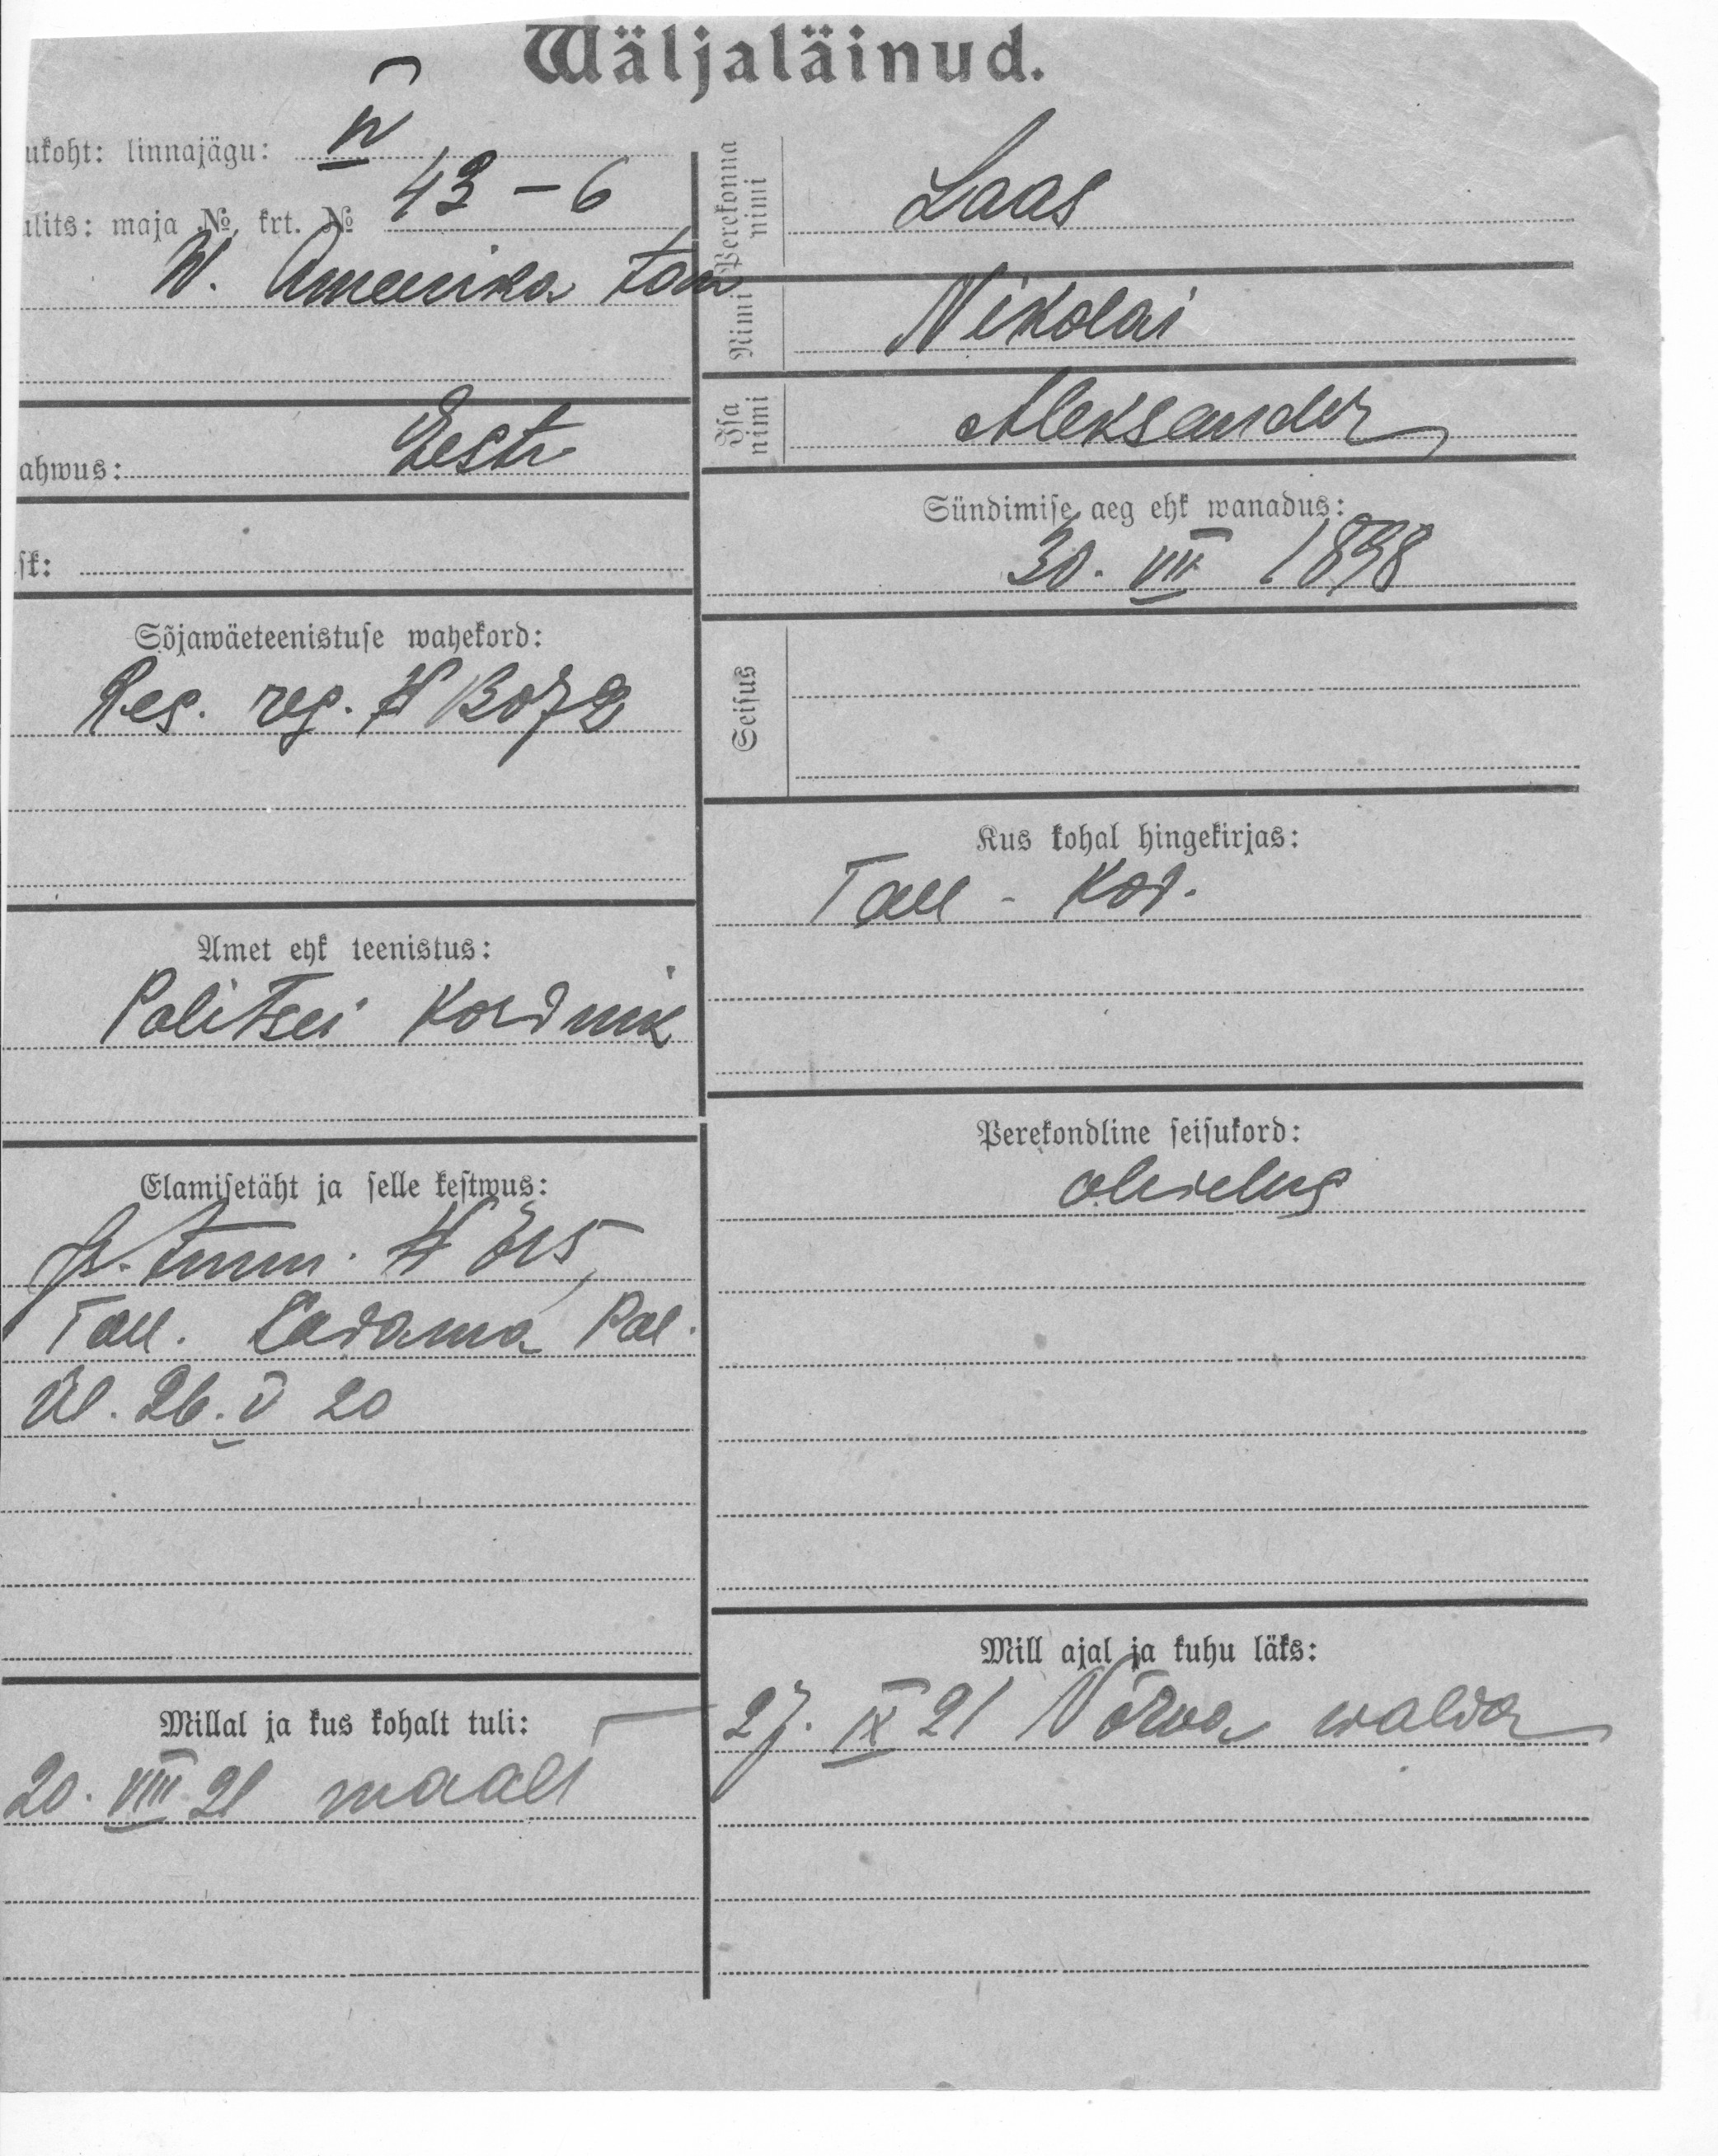 Wäljaläinud.
ukoht: linnajägu: IV
ulits: maja № krt. № 43 – 6
W. Ameerika tän
ahwus: Eesti
sk:
Sõjawäeteenistuse wahekord:
Res. reg. №
Amet ehk teenistus:
Politsei Kordnik
Elamisetäht ja selle kestwus:
tunn. №
Tall. Sadama Pol.
26. V 20
Millal ja kus kohalt tuli:
20. VIII 21 maalt
Perekonna nimi Laas
Nimi Nikolai
Isa nimi Aleksander
Sündimise aeg ehk wanadus:
30. VIII 1898
Seisus
Kus kohal hingekirjas:
Tall - Kod.
Perekondline seisukord:
abielus
Mill ajal ja kuhu läks:
27. IX 21 Nõrva walda